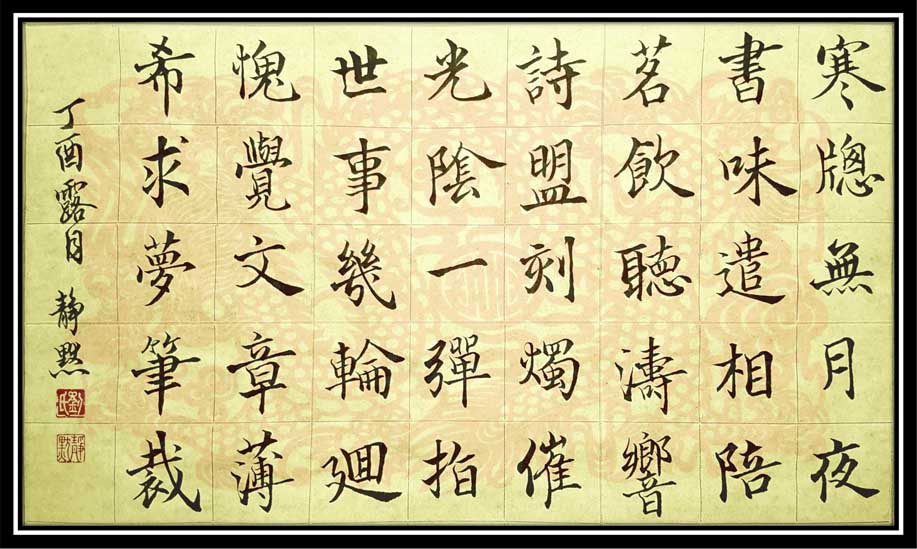 寒牕無月夜
書味遣相陪
茗飲聽濤響
詩盟刻燭催
光陰一彈指
世事幾輪廻
愧覺文章薄
希求夢筆裁
丁酉露月 靜黙
劉氏
靜黙